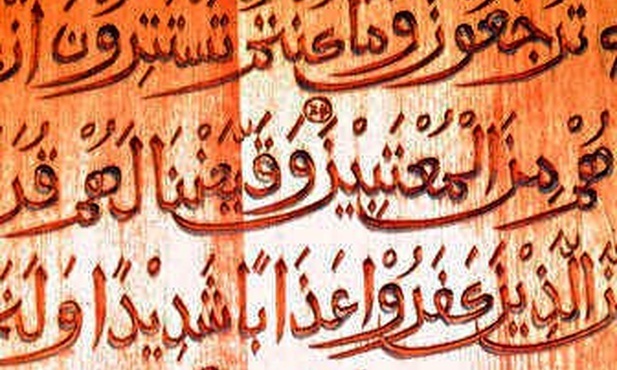 تُرْجَعُوْنَ وَمَا كُنْتُمْ تَسْتَتِرُوْنَ اَنْ
هُمْ مِنَ الْمُعْتَبِيْنَ ۝۲۴ وَقَيَّضْنَا لَهُمْ قُرَ
نَّ الَّذِيْنَ كَفَرُوْا عَذَابًا شَدِيْدًا وَلَنَ